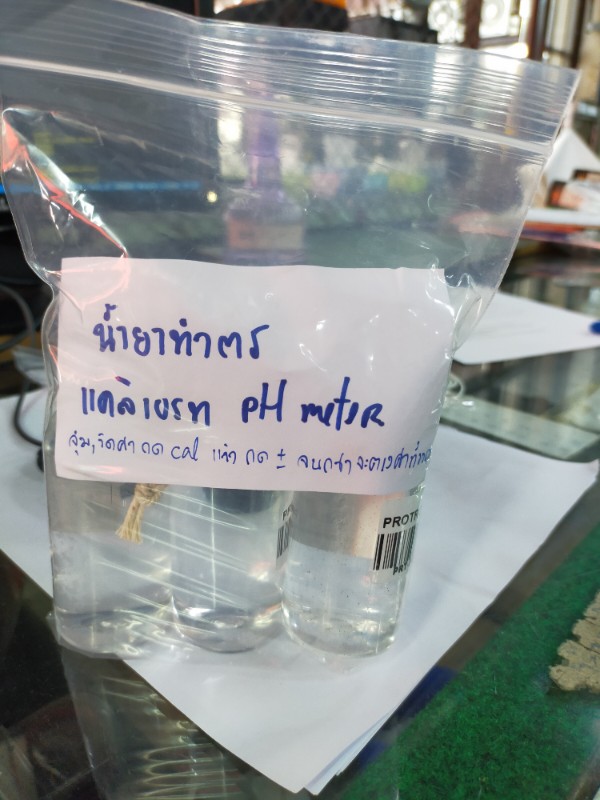 น้ำยาทำตร
แคลิเบรท pH meter
จุ่ม, วัดค่า กด cal แล้ว กด ± จนกว่าจะตรงค่า
PROT